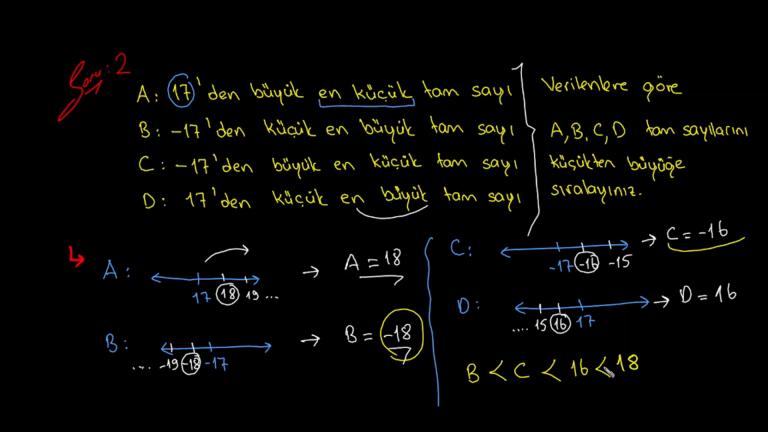 Soru: 2
A: 17'den büyük en küçük tam sayı
B: -17'den küçük en büyük tam sayı
C: -17'den büyük en küçük tam sayı
D: 17'den küçük en büyük tam sayı
Verilenlere göre
A, B, C, D tam sayılarını
küçükten büyüğe
sıralayınız.
A:
17 18 19 ...
→ A = 18
B:
.... -19 -18 -17
→ B = -18
C:
-17 -16 -15
→ C = -16
D:
.... 15 16 17
→ D = 16
B < C < 16 < 18